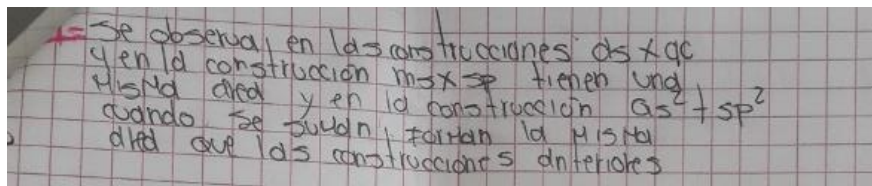 Se observa en las construcciones ds x qc
y en la construcción ms x sp tienen una
misma area y en la construcción as² + sp²
cuando se suman forman la misma
area que las construcciones anteriores